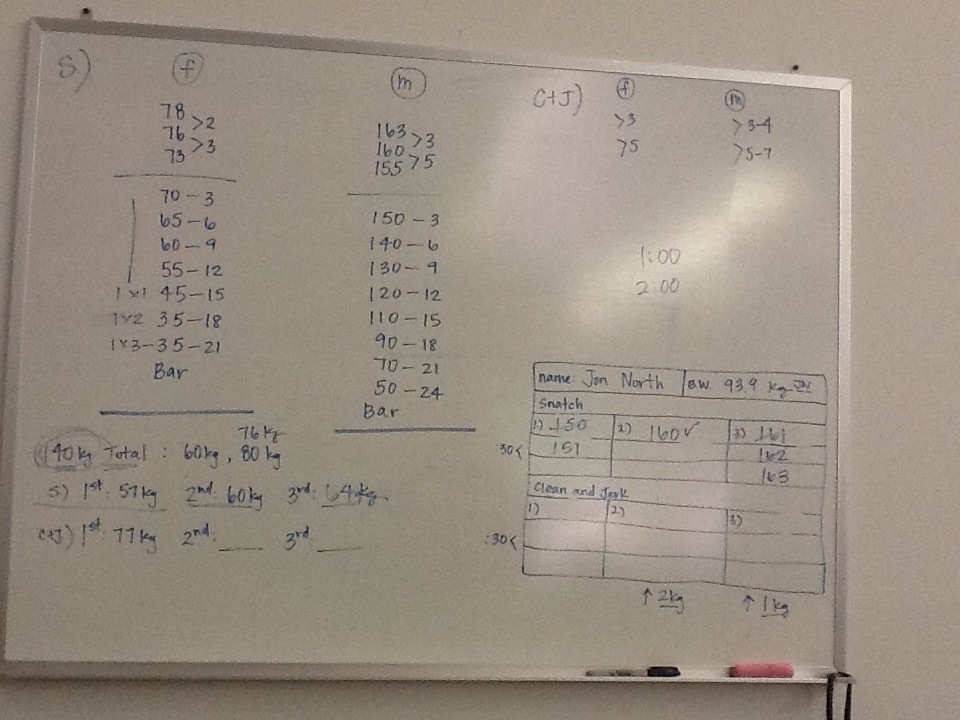 S) f
78
76 >2
73 >3
70 - 3
65 - 6
60 - 9
55 - 12
1x1 45 - 15
1x2 35 - 18
1x3 - 35 - 21
Bar
m
163
160 >3
155 >5
150 - 3
140 - 6
130 - 9
120 - 12
110 - 15
90 - 18
70 - 21
50 - 24
Bar
C+J) f m
>3 >3-4
>5 >5-7
1:00
2 00
76 kg
140 kg Total : 60kg, 80 kg
S) 1st: 57kg 2nd: 60kg 3rd: 64kg
C+J) 1st: 77kg 2nd: ___ 3rd: ___
name: Jon North B.W. 93.9 kg
Snatch
1) 150 2) 160 ✓ 3) 161
:30< 151 162
163
Clean and Jerk
1) 2) 3)
:30<
↑ 2kg ↑ 1kg